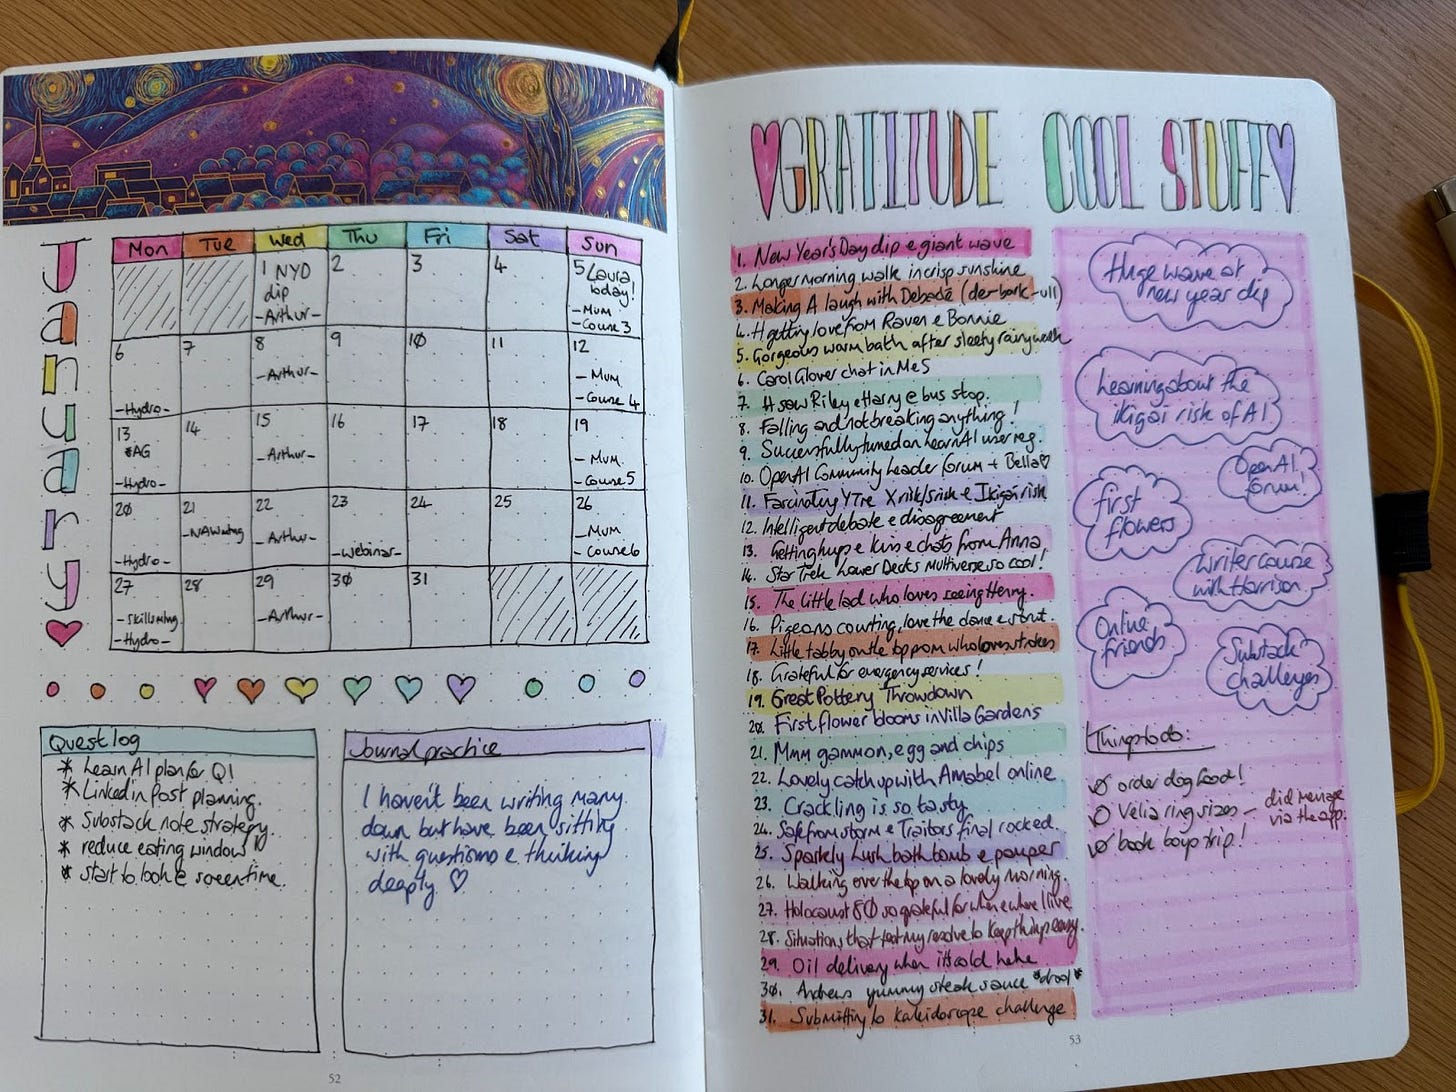 January
Mon Tue Wed Thu Fri Sat Sun
1 NYD
dip
-Arthur-
2
3
4
5 Laura
today!
- Mum
- Course 3
6
-Hydro-
7
8
-Arthur-
9
10
11
12
- Mum
- Course 4
13
*AG
-Hydro-
14
15
-Arthur-
16
17
18
19
- Mum
- Course 5
20
-Hydro-
21
22
-Arthur-
23
-Webinar-
24
25
26
- Mum
- Course 6
27
-Hydro-
28
29
-Arthur-
30
31
Quest log
* Learn AI plan for Q1
* Linkedin Post planning.
* Substack note strategy.
* reduce eating window
* start to look @ screentime.
Journal practice
I haven't been writing many
down but have been sitting
with questions & thinking
deeply ♡
52
GRATITUDE
1. New Year's Day dip & giant wave
2. Longer morning walk in crisp sunshine
3. Making A laugh with Debade (der-bark-ull)
4. H getting love from Raven & Bonnie
5. Gorgeous warm bath after sleety rainy walk
6. Carol Glover chat in M&S
7. H saw Riley & Harry @ bus stop.
8. Falling and not breaking anything!
9. Successfully tuned on Learn AI user reg.
10. OpenAI Community Leader forum + Bella♡
11. Fascinating YT re X risk/s risk & Ikigai risk
12. Intelligent debate & disagreement
13. Getting hugs & kiss & chats from Anna
14. Star Trek Lower Decks multiverse so cool!
15. The little lad who loves seeing Henry.
16. Pigeons courting, love the dance & strut.
17. Little tabby on the top prom who loves strokes
18. Grateful for emergency services!
19. Great Pottery Throwdown
20. First flower blooms in Villa Gardens
21. Mmm gammon, egg and chips
22. Lovely catch up with Amabel online
23. Crackling is so tasty
24. Safe from storm & Traitors final rocked.
25. Sparkly Lush bath bomb & pamper
26. Walking over the top on a lovely morning.
27. Holocaust 80 so grateful for when & where I live
28. Situations that test my resolve to keep things easy.
29. Oil delivery when it's cold hehe
30. Andrews yummy steak sauce *drool*
31. Submitting to kaleidoscope challenge
COOL STUFF
Huge wave at
new year dip
Learning about the
ikigai risk of AI
OpenAI
forum!
first
flowers
Writer course
with Harrison
Online
friends
Substack
challenges
Things to do:
order dog food!
Velia ring sizes - did message
via the app.
book boys trip!
53